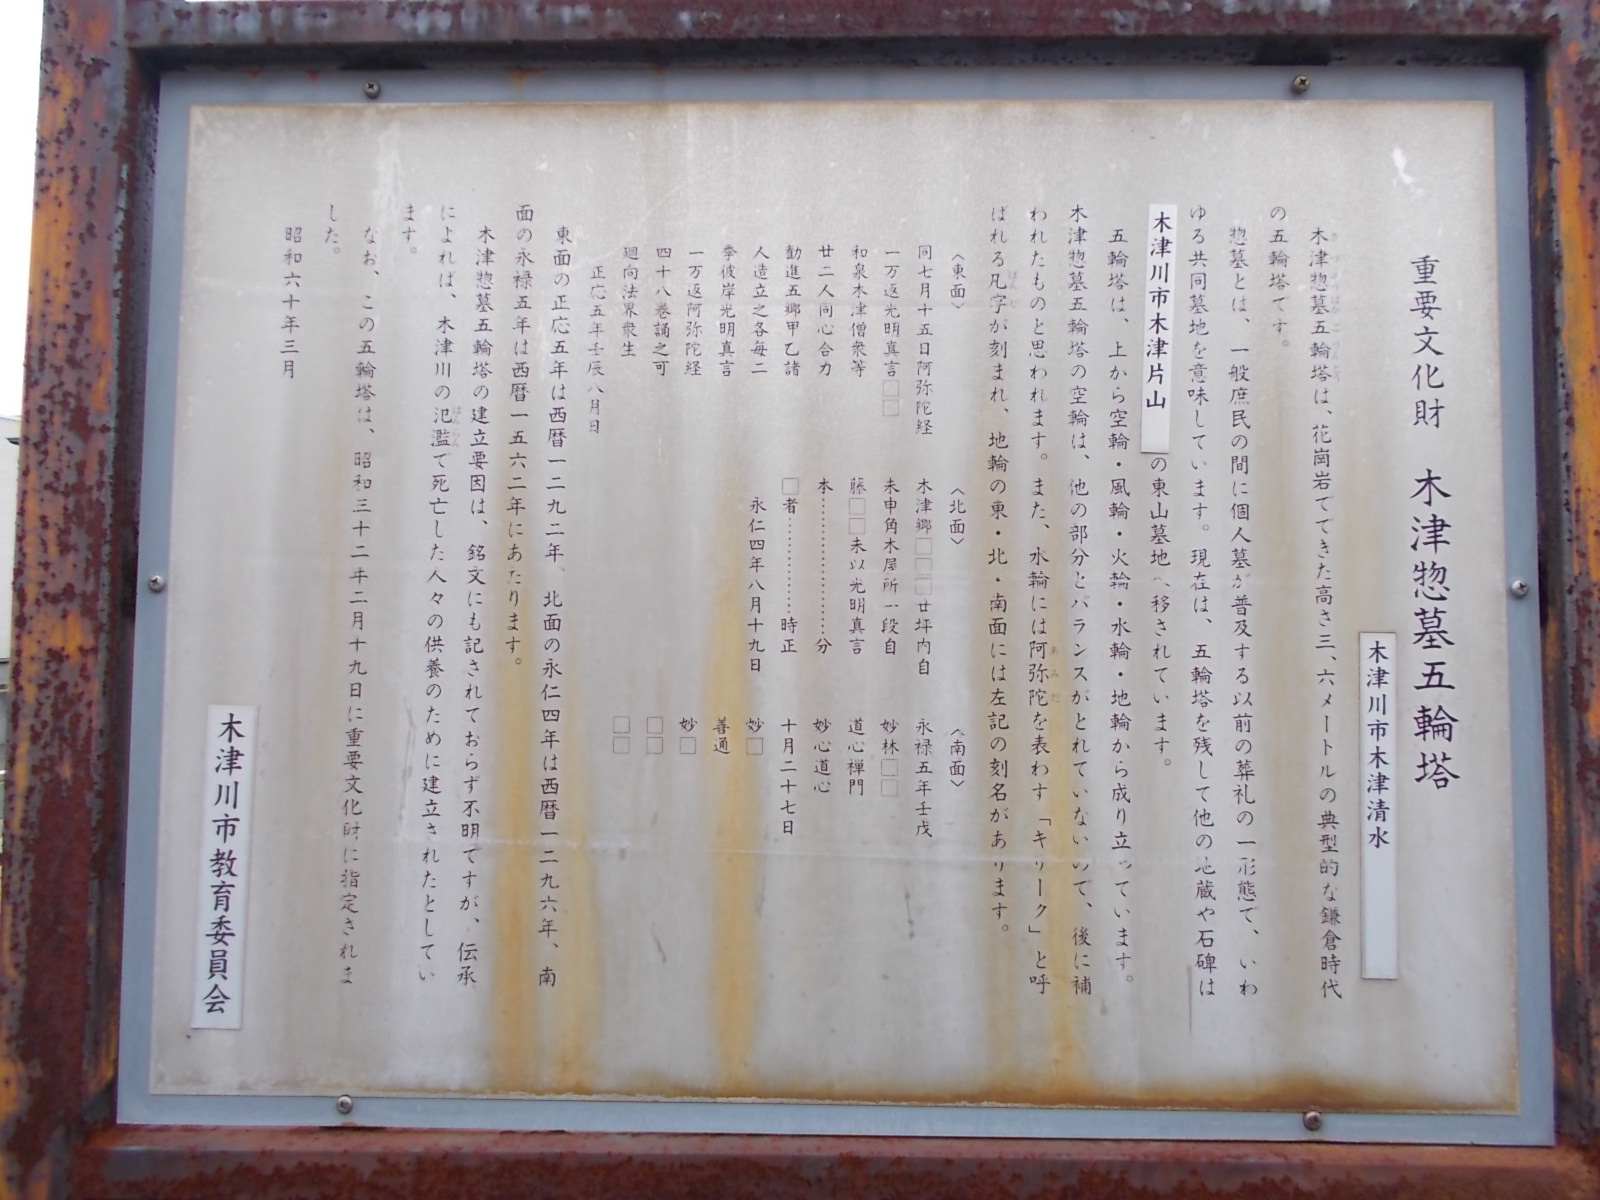 重要文化財　木津惣墓五輪塔
木津川市木津清水
木津惣墓五輪塔は、花崗岩でできた高さ三、六メートルの典型的な鎌倉時代
の五輪塔です。
惣墓とは、一般庶民の間に個人墓が普及する以前の葬礼の一形態で、いわ
ゆる共同墓地を意味しています。現在は、五輪塔を残して他の地蔵や石碑は
木津川市木津片山の東山墓地へ移されています。
五輪塔は、上から空輪・風輪・火輪・水輪・地輪から成り立っています。
木津惣墓五輪塔の空輪は、他の部分とバランスがとれていないので、後に補
われたものと思われます。また、水輪には阿弥陀を表わす「キリーク」と呼
ばれる凡字が刻まれ、地輪の東・北・南面には左記の刻名があります。
〈東面〉
同七月十五日阿弥陀経
一万返光明真言□□
和泉木津僧衆等
廿二人同心合力
勧進五郷甲乙諸
人造立之各毎二
季彼岸光明真言
一万返阿弥陀経
四十八巻誦之可
廻向法界衆生
正応五年壬辰八月日
〈北面〉
木津郷□□□廿坪内自
未申角木屋所一段自
藤□□未以光明真言
本…………………分
□者……………時正
永仁四年八月十九日
〈南面〉
永禄五年壬戌
妙林□□
道心禅門
妙心道心
十月二十七日
妙□
善通
妙□
□□
□□
東面の正応五年は西暦一二九二年、北面の永仁四年は西暦一二九六年、南
面の永禄五年は西暦一五六二年にあたります。
木津惣墓五輪塔の建立要因は、銘文にも記されておらず不明ですが、伝承
によれば、木津川の氾濫で死亡した人々の供養のために建立されたとしてい
ます。
なお、この五輪塔は、昭和三十二年二月十九日に重要文化財に指定されま
した。
昭和六十年三月
木津川市教育委員会